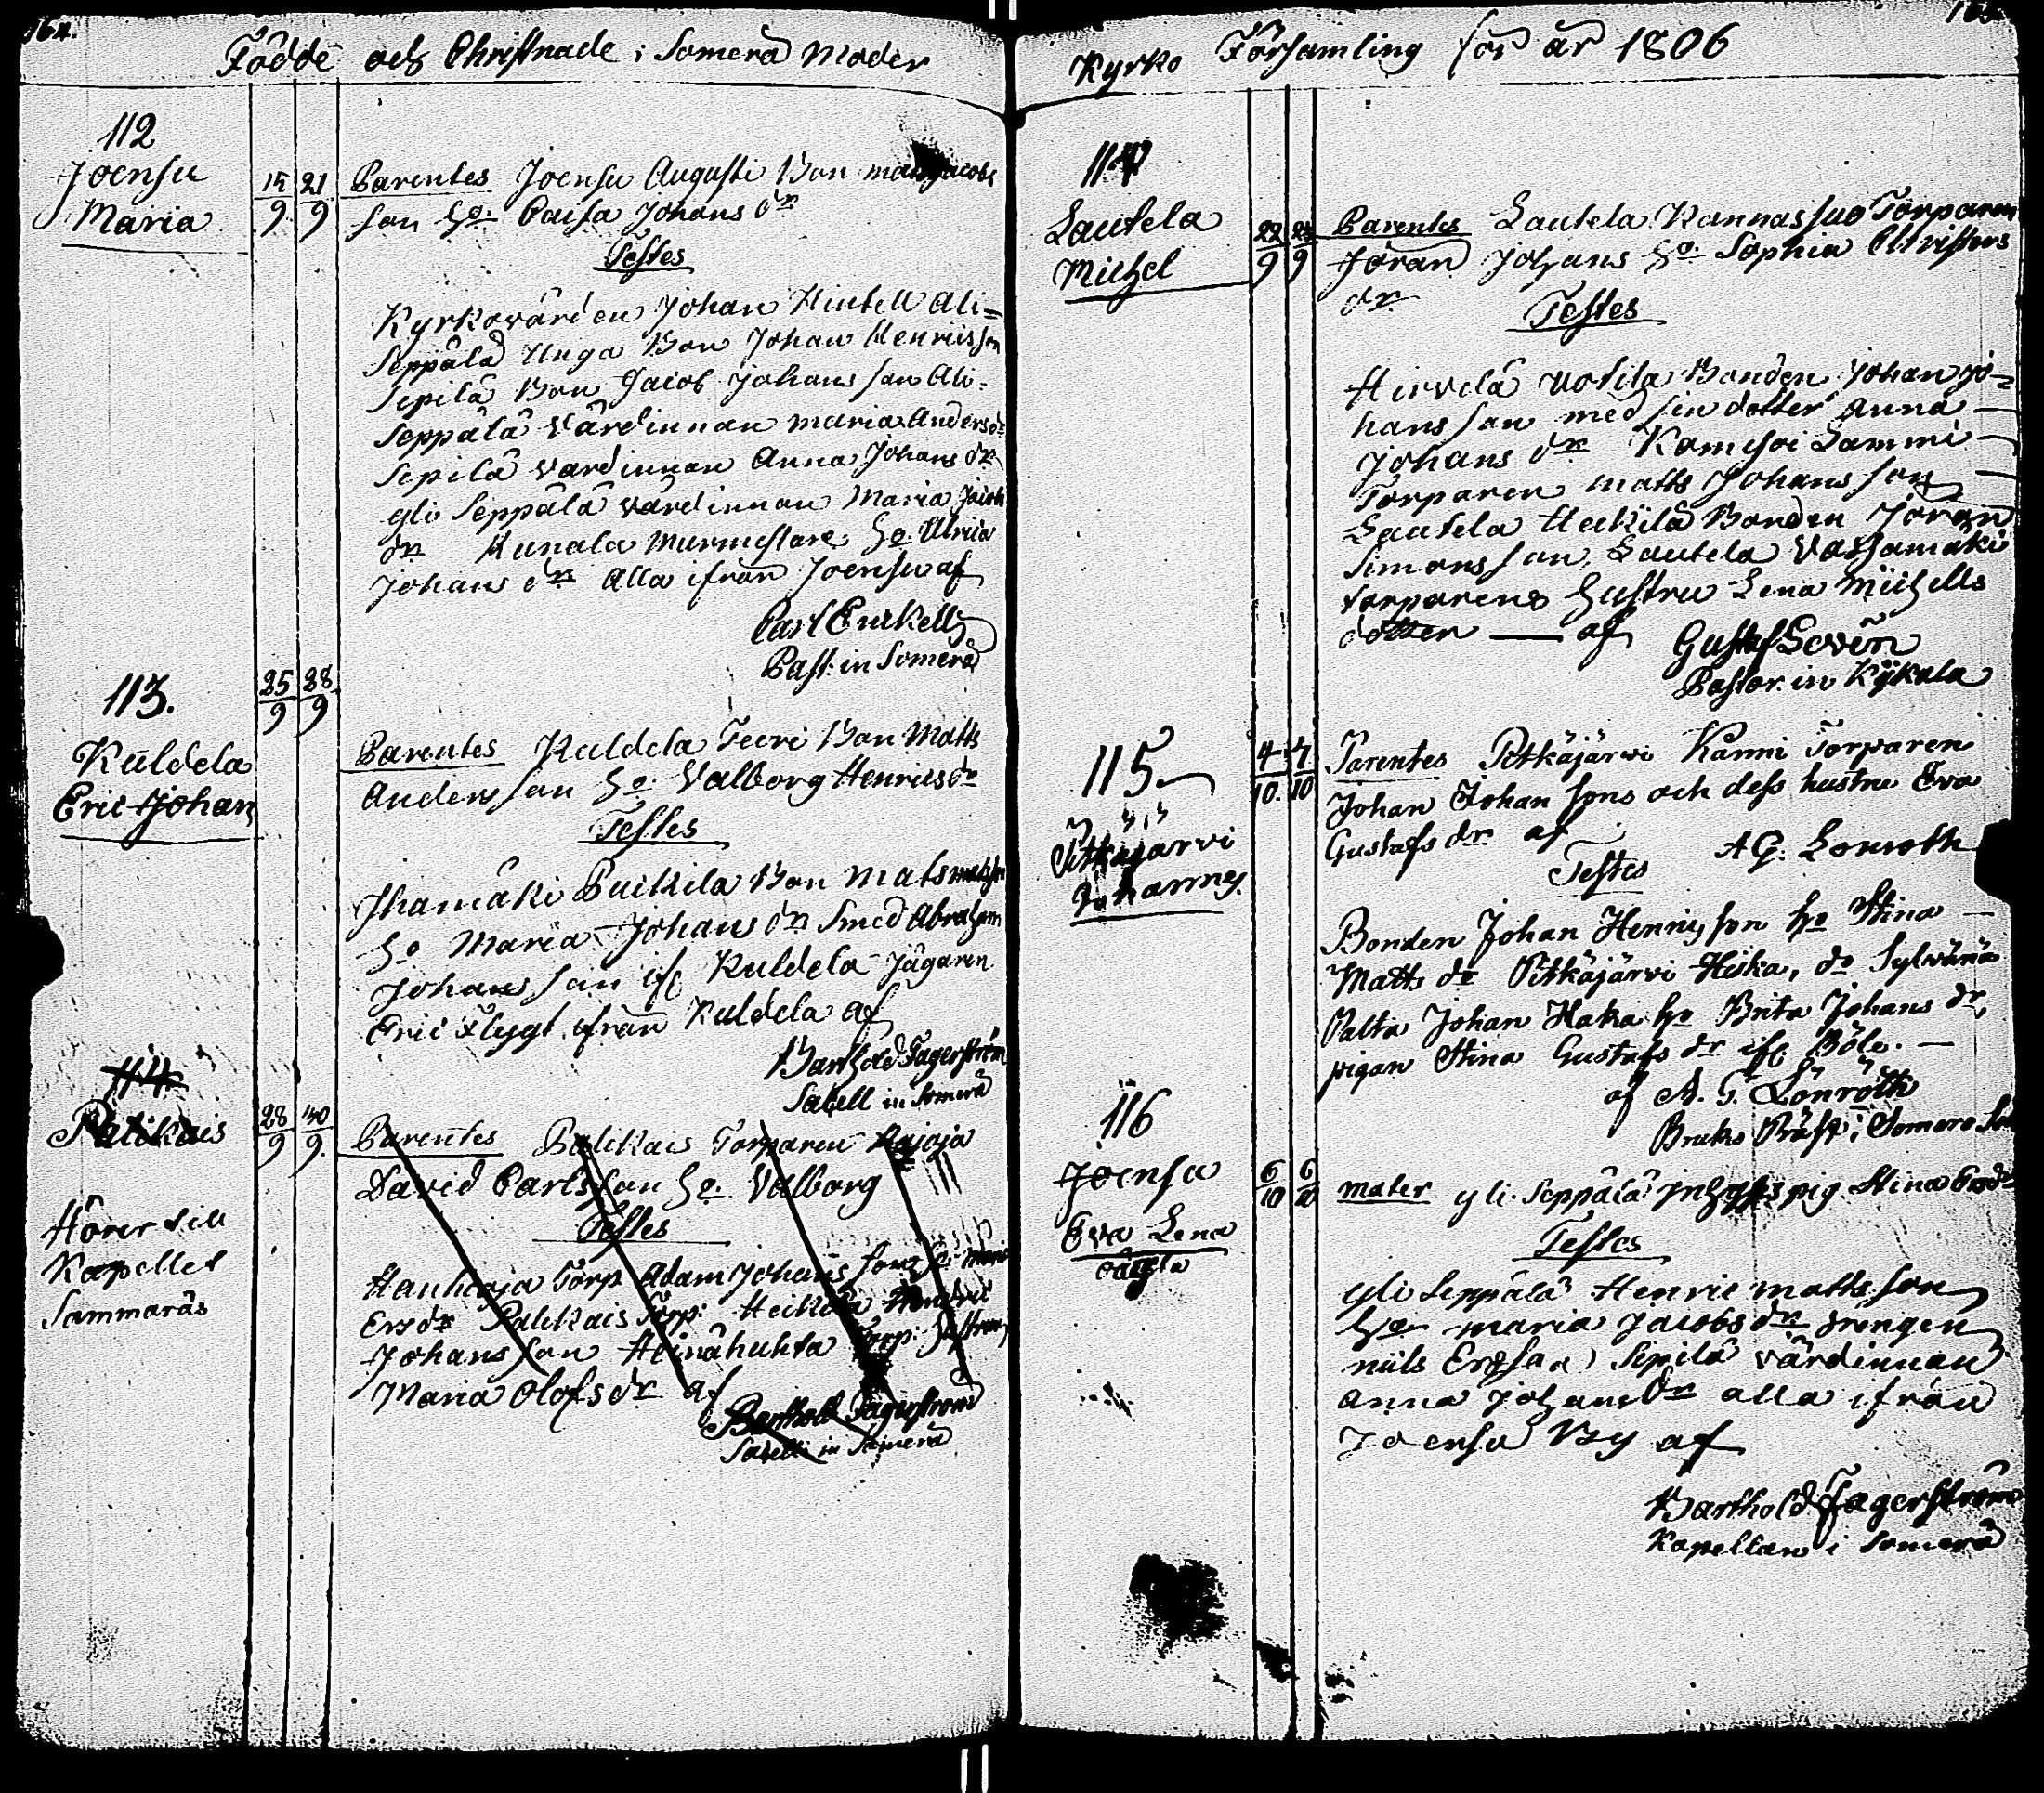 164.
Födde och Christnade i Somerå Moder
112
Joensu
Maria
15/9 21/9
Parentes Joensu Augusti Bon mats Jacobs
son ho. Caisa Johans dr
Testes
Kyrkovärden Johan Hintell Ali-
Seppälä Unga Bon Johan Henricsson
Sepilä Bon Jacob Johans son Ali-
Seppälä Värdinnan Maria Anders dr
Sepilä värdinnan Anna Johans dr
yli Seppälä värdinnan Maria Jacobs
dr Kunala Murmestare ho. Ulrica
Johans dr alla ifrån Joensu af
Carl
Past: in Somerå
113.
Kuldela
Eric Johan
25/9 28/9
Parentes Kuldela Teeri Bon Matts
Anders son ho. Valborg Henrics dr
Testes
Jhamäki Puikila Bon Mats
ho Maria Johans dr Smed Abraham
Johans son if Kuldela Jägaren
Eric Flygt ifrån Kuldela af
Barthold Fagerström
Sacell in Somerå
114
Palikais
Hörer till
Kapellet
Sammaräs
28/9
Parentes Palikais Torparen
David Carls son ho. Valborg
Testes
Torp Adam Johans son ho.
Ers dr Palikais Torp: Heikilä
Johans son Heinähuhta Torp:
Maria Olofs dr af
Barthold Fagerström
Sacell in Somerå
Kyrko Församling för år 1806
114
Lautela
Michel
22/9
Parentes Lautela Kannassuo Torparen
Jöran Johans ho. Sophia Christers
dr.
Testes
Hirvelä Uotila Bonden Johan Jo-
hans son med sin dotter Anna
Johans dr Lammi
Torparen Matts Johans son
Lautela Heikilä Bonden Jöran
Simons son, Lautela
torparens hustru Lena Michells
dotter — af Gustaf
Pastor. in Kijkala
115
Pitkäjärvi
Johannes.
4/10. 7/10
Parentes Pitkäjärwi Kanni Torparen
Johan Johan sons och dess hustru Eva
Gustafs dr af
Testes A G. Lönroth
Bonden Johan Henrics son ho Stina
Matts dr Pitkäjärwi Hiska, do Sylwänä
Palta Johan Haka ho Brita Johans dr,
pigan Stina Gustafs dr if. Böle. —
af A. G. Lönroth
Bruks Präst i Somero
116
Joensu
Eva Lena
oäkta
6/10 6/10
mater yli Seppälä pig. Stina
Testes
yli Seppälä Henric matts son
ho maria Jacobs dr drängen
niils Ers son Sepilä värdinnan
Anna Johans dr alla ifrån
Joensu By af
Barthold Fagerström
Kapellan i Somerå